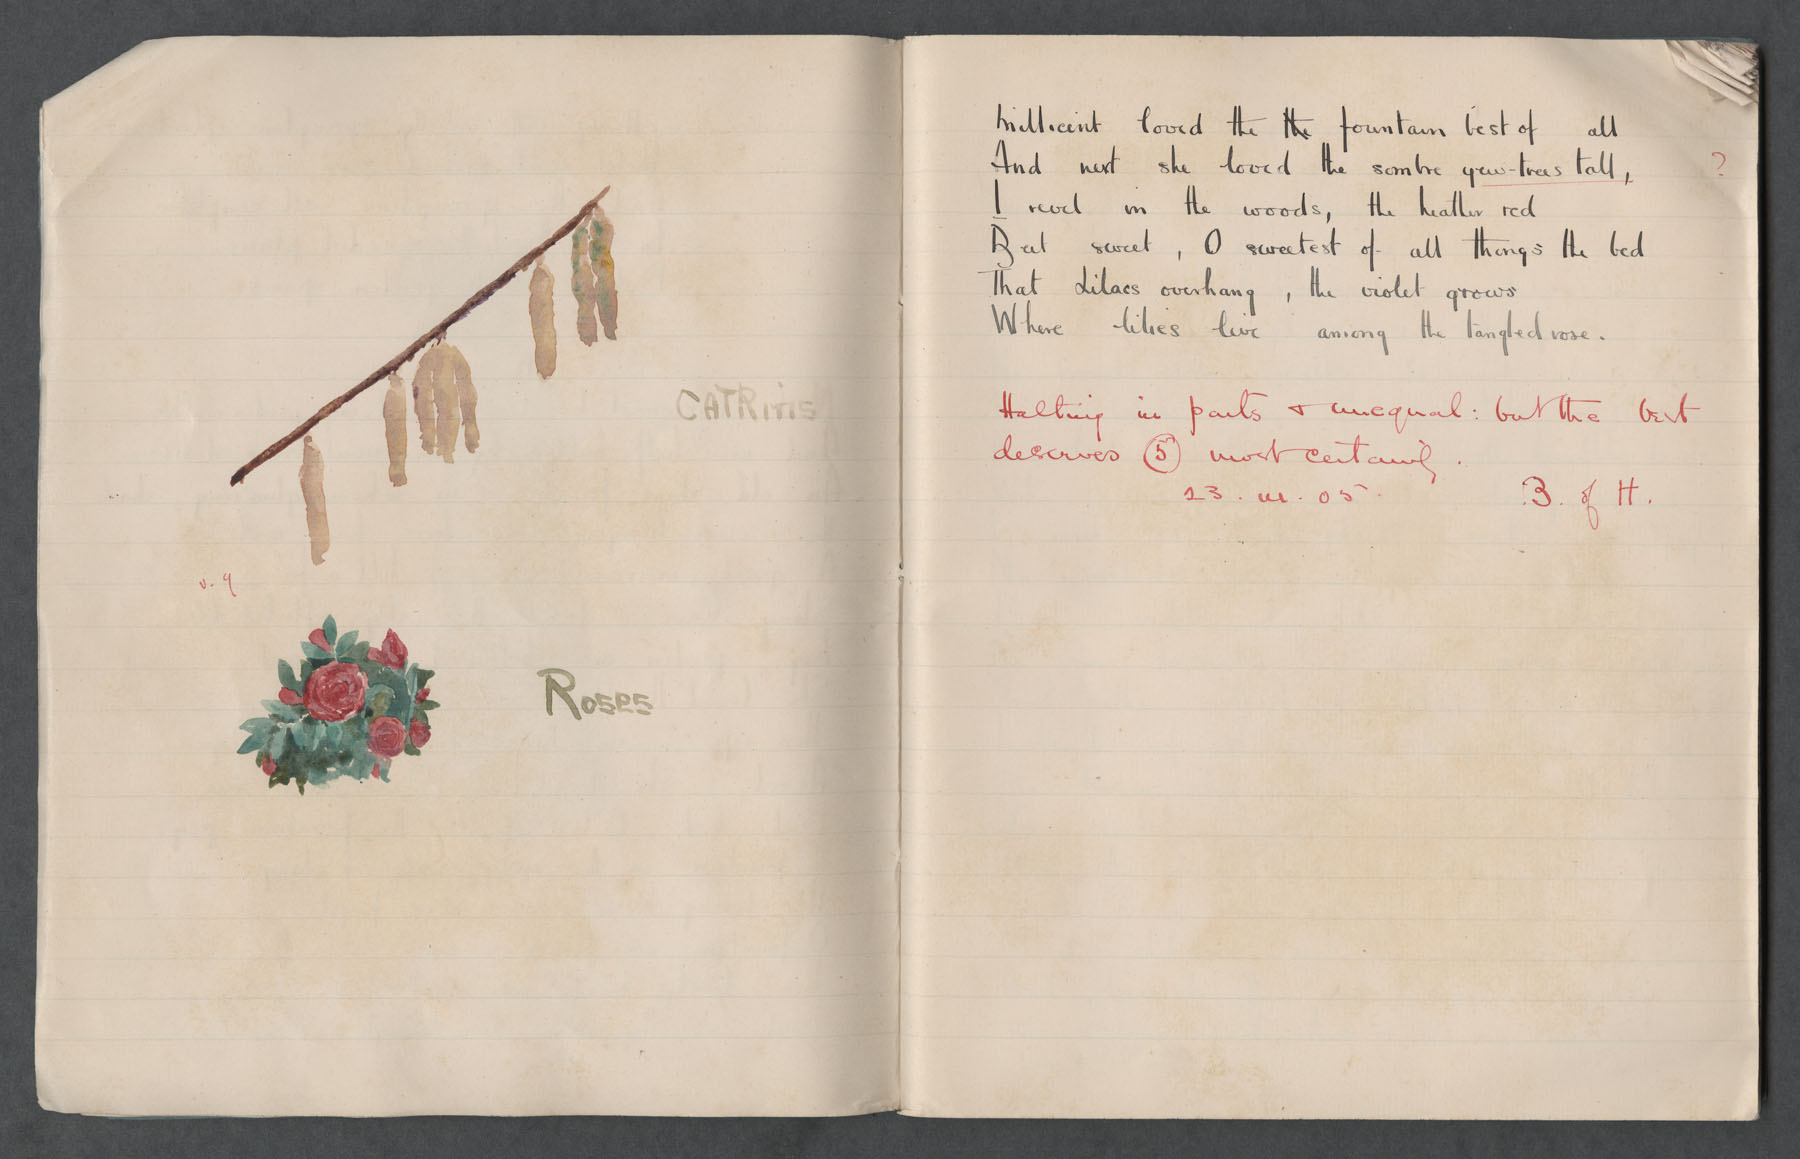 CATKINS
v. g
Roses
Millicent loved the the fountain best of all
And next she loved the sombre yew-trees tall,
?
I revel in the woods, the heather red
But sweet, O sweetest of all things the bed
That Lilacs overhang, the violet grows
Where lilies live among the tangled rose.
Halting in parts + unequal: but the best
deserves 5 most certainly.
23. III. 05.
B. of H.